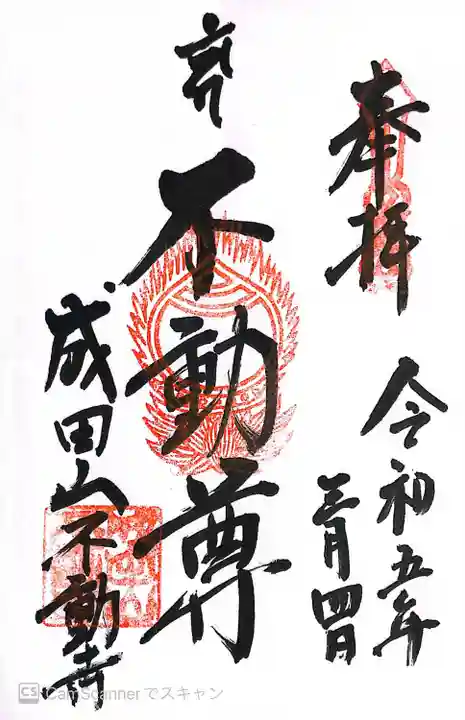 奉拝
令和五年
三月四日
不動尊
成田山不動寺
CS CamScannerでスキャン